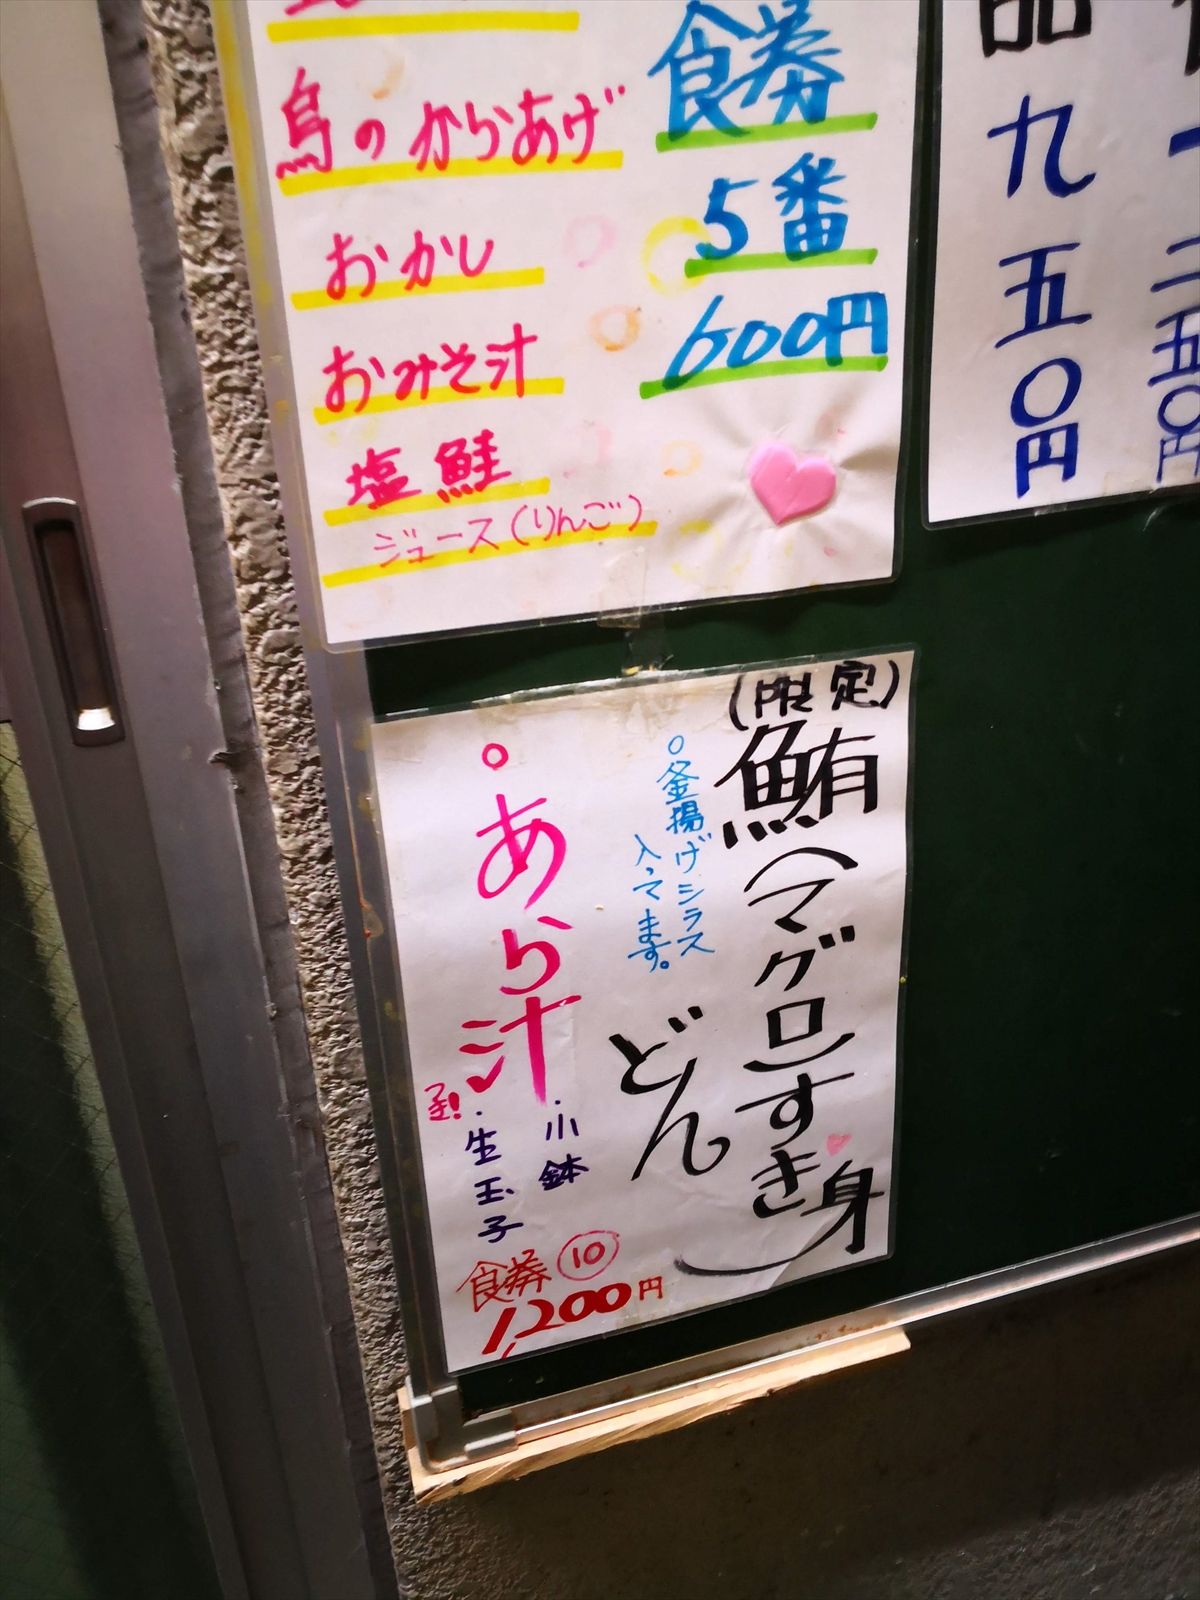 鳥のからあげ
おかし
おみそ汁
塩鮭
ジュース(りんご)
食券
5番
600円
品 九五〇円
二五〇円
(限定)
鮪(マグロ)すき身
どん
○釜揚げシラス
入ってます。
○あら汁
・小鉢
・生玉子
食券⑩
1,200円